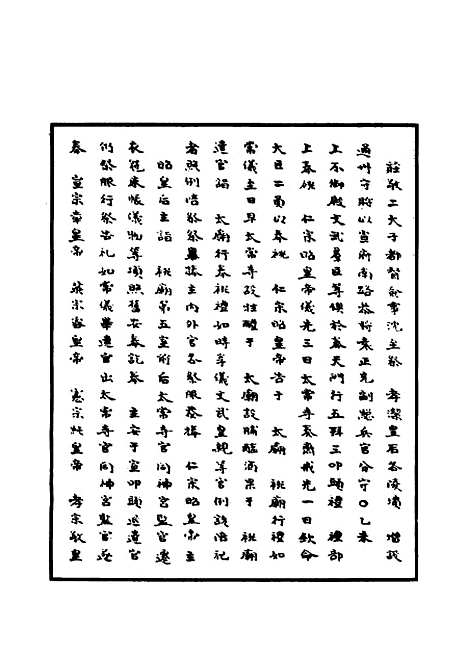 莊敬二太子都督僉事沈至祭 孝潔皇后忌陵墳 增設
通州守將以宣府南路參將袁正充副總兵官分守○乙未
上不御殿文武羣臣等俱於奉天門行五拜三叩頭禮 禮部
上奉祧 仁宗昭皇帝儀先三日太常寺奏齋戒先一日欽命
大臣二員以奉祧 仁宗昭皇帝告于 太廟 祧廟行禮如
常儀至日早太常寺設牲醴于 太廟設脯醢酒果于 祧廟
遣官詣 太廟行奉祧禮如時享儀文武皇親等官例該陪祀
者照例陪祭祭畢捧主內外官各祭服恭捧 仁宗昭皇帝主
昭皇后主詣 祧廟第五室前后太常寺官同神宮監官遷
衣冠床帳儀物等項照舊安奉訖奉 主安于室叩頭退遣官
仍祭服行祭告禮如常儀畢遣官出太常寺官同神宮監官遞
奉 宣宗章皇帝 英宗睿皇帝 憲宗純皇帝 孝宗敬皇